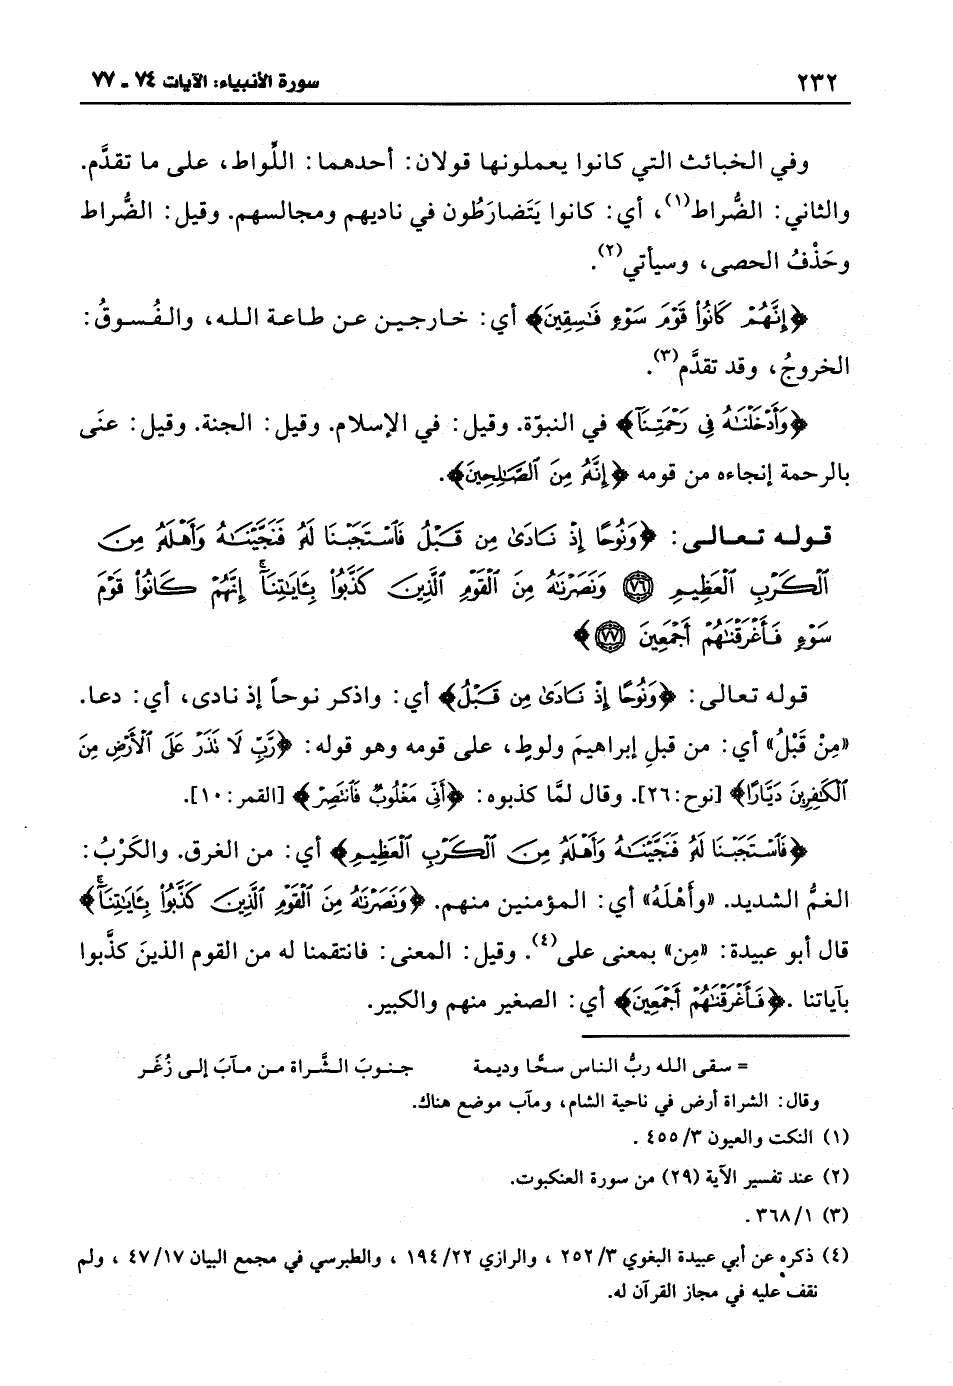 ٢٣٢ سورة الأنبياء: الآيات ٧٤ - ٧٧
وفي الخبائث التي كانوا يعملونها قولان: أحدهما: اللِّواط، على ما تقدَّم.
والثاني: الضُّراط(١)، أي: كانوا يَتَضارَطُون في ناديهم ومجالسهم. وقيل: الضُّراط
وحَذْفُ الحصى، وسيأتي(٢).
﴿إِنَّهُمْ كَانُوا۟ قَوْمَ سَوْءٍ فَـٰسِقِينَ﴾ أي: خارجين عن طاعة الله، والفُسوقُ:
الخروجُ، وقد تقدَّم(٣).
﴿وَأَدْخَلْنَـٰهُ فِى رَحْمَتِنَآ﴾ في النبوّة. وقيل: في الإسلام. وقيل: الجنة. وقيل: عنَى
بالرحمة إنجاءه من قومه ﴿إِنَّهُۥ مِنَ ٱلصَّـٰلِحِينَ﴾.
قوله تعالى: ﴿وَنُوحًا إِذْ نَادَىٰ مِن قَبْلُ فَٱسْتَجَبْنَا لَهُۥ فَنَجَّيْنَـٰهُ وَأَهْلَهُۥ مِنَ
ٱلْكَرْبِ ٱلْعَظِيمِ ٧٦ وَنَصَرْنَـٰهُ مِنَ ٱلْقَوْمِ ٱلَّذِينَ كَذَّبُوا۟ بِـَٔايَـٰتِنَآ ۚ إِنَّهُمْ كَانُوا۟ قَوْمَ
سَوْءٍ فَأَغْرَقْنَـٰهُمْ أَجْمَعِينَ ٧٧﴾
قوله تعالى: ﴿وَنُوحًا إِذْ نَادَىٰ مِن قَبْلُ﴾ أي: واذكر نوحاً إذ نادى، أي: دعا.
«مِنْ قَبْلُ» أي: من قبلِ إبراهيمَ ولوطٍ، على قومه وهو قوله: ﴿رَّبِّ لَا تَذَرْ عَلَى ٱلْأَرْضِ مِنَ
ٱلْكَـٰفِرِينَ دَيَّارًا﴾ [نوح:٢٦]. وقال لمَّا كذبوه: ﴿أَنِّى مَغْلُوبٌ فَٱنتَصِرْ﴾ [القمر:١٠].
﴿فَٱسْتَجَبْنَا لَهُۥ فَنَجَّيْنَـٰهُ وَأَهْلَهُۥ مِنَ ٱلْكَرْبِ ٱلْعَظِيمِ﴾ أي: من الغرق. والكَرْبُ:
الغمُّ الشديد. «وأَهْلَهُ» أي: المؤمنين منهم. ﴿وَنَصَرْنَـٰهُ مِنَ ٱلْقَوْمِ ٱلَّذِينَ كَذَّبُوا۟ بِـَٔايَـٰتِنَآ ۚ﴾
قال أبو عبيدة: «مِن» بمعنى على(٤). وقيل: المعنى: فانتقمنا له من القوم الذينَ كذَّبوا
بآياتنا .﴿فَأَغْرَقْنَـٰهُمْ أَجْمَعِينَ﴾ أي: الصغير منهم والكبير.
= سقى الله ربُّ الناس سحًّا وديمة جنوبَ الشَّراة من مآبَ إلى زُغَر
وقال: الشراة أرض في ناحية الشام، ومآب موضع هناك.
(١) النكت والعيون ٤٥٥/٣ .
(٢) عند تفسير الآية (٢٩) من سورة العنكبوت.
(٣) ٣٦٨/١ .
(٤) ذكره عن أبي عبيدة البغوي ٢٥٢/٣ ، والرازي ١٩٤/٢٢ ، والطبرسي في مجمع البيان ٤٧/١٧ ، ولم
نقف عليه في مجاز القرآن له.